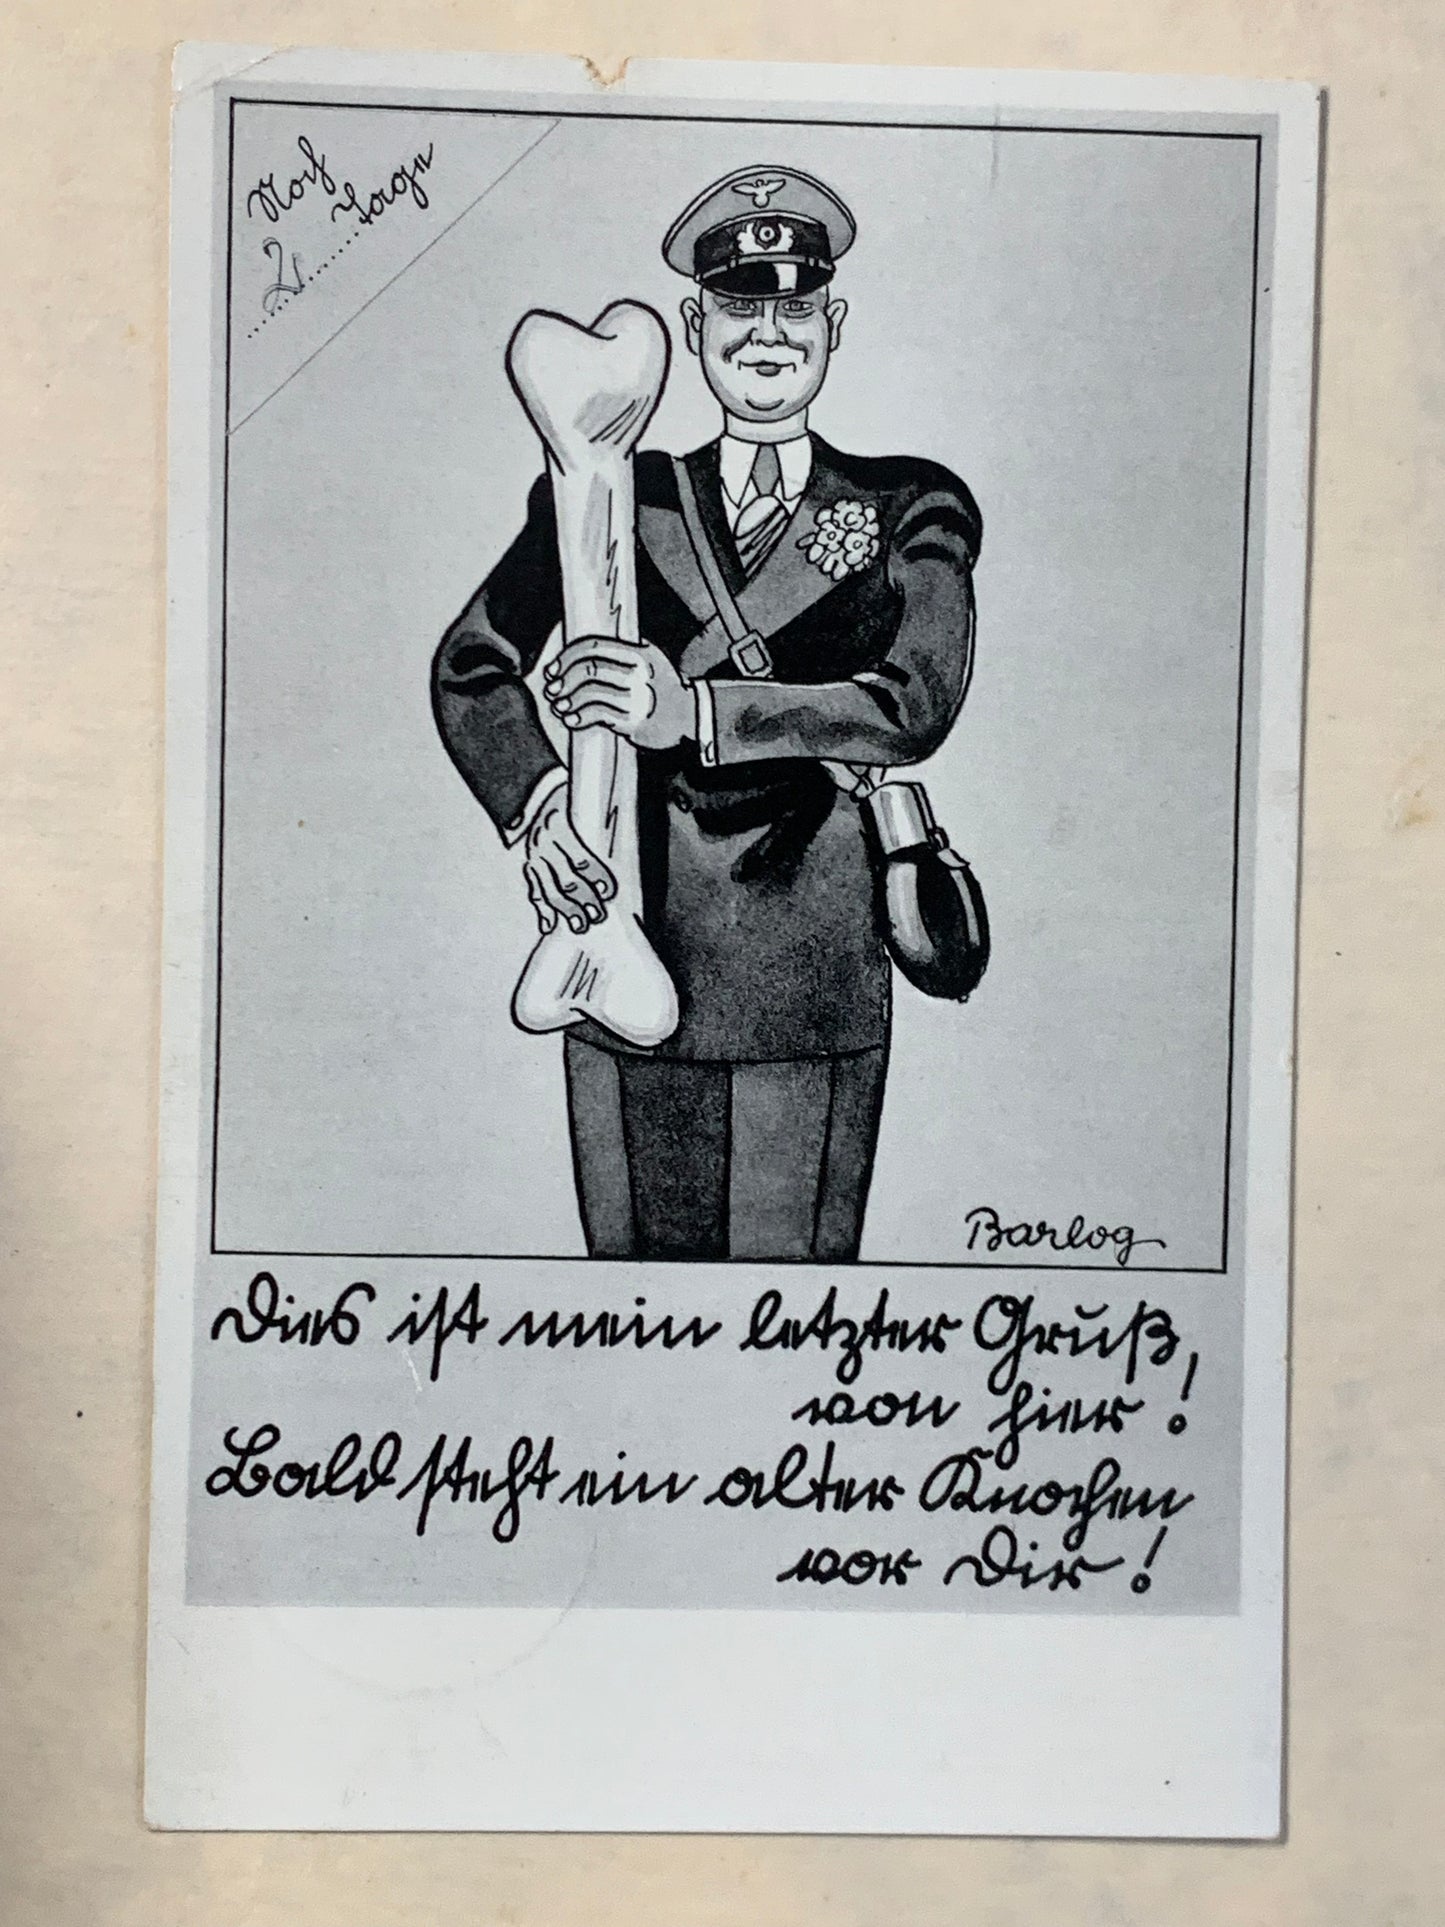 Noch
2 Tage
Barlog
Dies ist mein letzter Gruß,
von hier!
Bald steht ein alter Knochen
vor Dir!